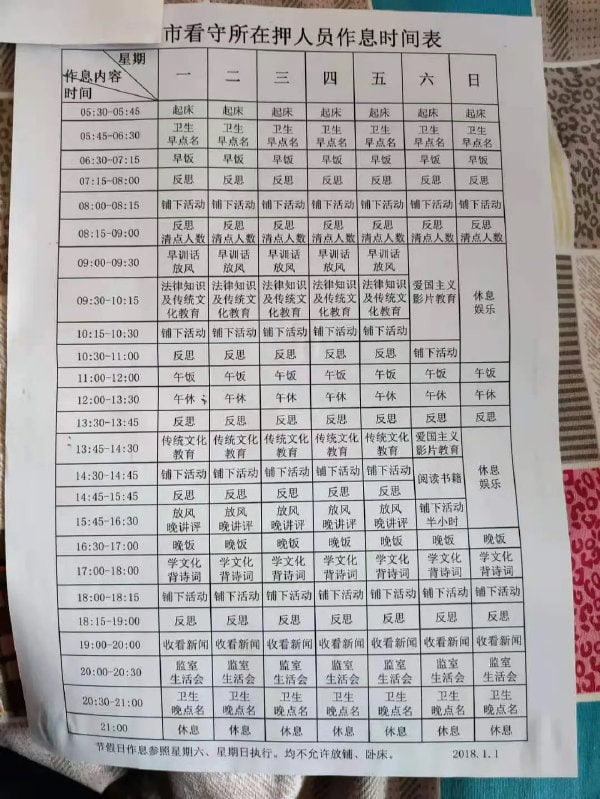 市看守所在押人员作息时间表
星期
作息内容
时间
一 二 三 四 五 六 日
05:30-05:45 起床 起床 起床 起床 起床 起床 起床
05:45-06:30 卫生 卫生 卫生 卫生 卫生 卫生 卫生
早点名 早点名 早点名 早点名 早点名 早点名 早点名
06:30-07:15 早饭 早饭 早饭 早饭 早饭 早饭 早饭
07:15-08:00 反思 反思 反思 反思 反思 反思 反思
08:00-08:15 铺下活动 铺下活动 铺下活动 铺下活动 铺下活动 铺下活动 铺下活动
08:15-09:00 反思 反思 反思 反思 反思 反思 反思
清点人数 清点人数 清点人数 清点人数 清点人数 清点人数 清点人数
09:00-09:30 早训话 早训话 早训话 早训话 早训话
放风 放风 放风 放风 放风
09:30-10:15 法律知识 法律知识 法律知识 法律知识 法律知识 爱国主义 休息
及传统文 及传统文 及传统文 及传统文 及传统文 影片教育 娱乐
化教育 化教育 化教育 化教育 化教育
10:15-10:30 铺下活动 铺下活动 铺下活动 铺下活动 铺下活动
10:30-11:00 反思 反思 反思 反思 反思 铺下活动
11:00-12:00 午饭 午饭 午饭 午饭 午饭 午饭 午饭
12:00-13:30 午休 午休 午休 午休 午休 午休 午休
13:30-13:45 反思 反思 反思 反思 反思 反思 反思
13:45-14:30 传统文化 传统文化 传统文化 传统文化 传统文化 爱国主义
教育 教育 教育 教育 教育 影片教育
14:30-14:45 铺下活动 铺下活动 铺下活动 铺下活动 铺下活动 阅读书籍 休息
14:45-15:45 反思 反思 反思 反思 反思 娱乐
15:45-16:30 放风 放风 放风 放风 放风 铺下活动
晚讲评 晚讲评 晚讲评 晚讲评 晚讲评 半小时
16:30-17:00 晚饭 晚饭 晚饭 晚饭 晚饭 晚饭 晚饭
17:00-18:00 学文化 学文化 学文化 学文化 学文化 学文化 学文化
背诗词 背诗词 背诗词 背诗词 背诗词 背诗词 背诗词
18:00-18:15 铺下活动 铺下活动 铺下活动 铺下活动 铺下活动 铺下活动 铺下活动
18:15-19:00 反思 反思 反思 反思 反思 反思 反思
19:00-20:00 收看新闻 收看新闻 收看新闻 收看新闻 收看新闻 收看新闻 收看新闻
20:00-20:30 监室 监室 监室 监室 监室 监室 监室
生活会 生活会 生活会 生活会 生活会 生活会 生活会
20:30-21:00 卫生 卫生 卫生 卫生 卫生 卫生 卫生
晚点名 晚点名 晚点名 晚点名 晚点名 晚点名 晚点名
21:00 休息 休息 休息 休息 休息 休息 休息
节假日作息参照星期六、星期日执行。均不允许放铺、卧床。 2018.1.1